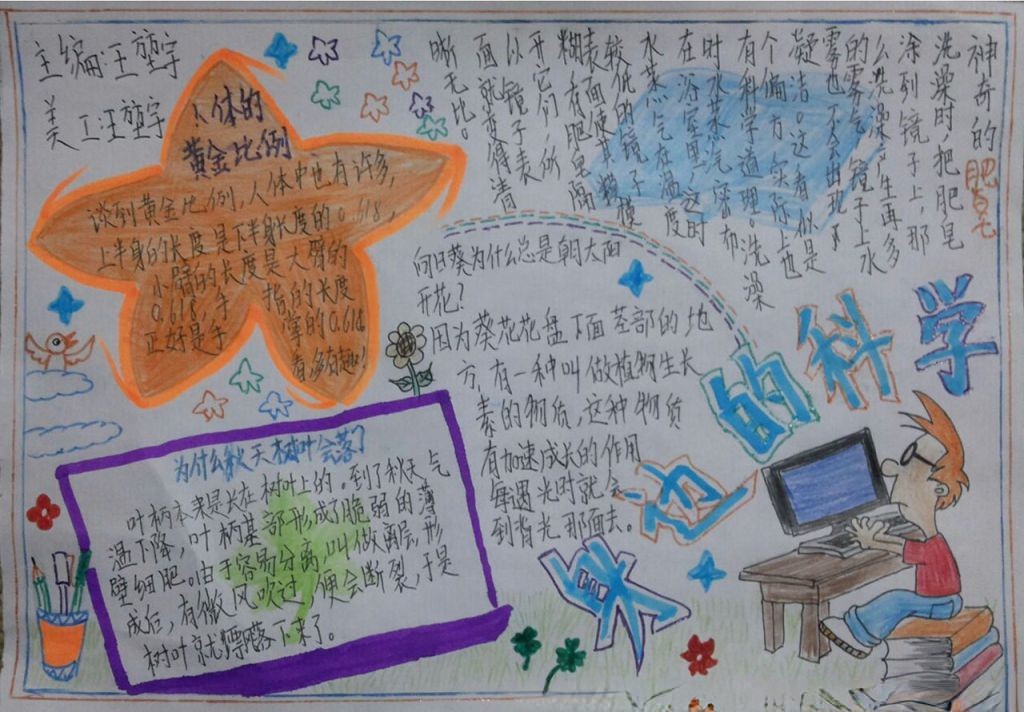 主编:汪宇
美工:汪宇
人体的
黄金比例
谈到黄金比例,人体中也有许多,
上半身的长度是下半身长度的0.618,
小臂的长度是大臂的
0.618,手指的长度
正好是手掌的0.618
看多有趣!
神奇的肥皂
洗澡时把肥皂
涂到镜子上,那
么洗澡产生再多
的雾气,镜子上水
雾也不会出现了
凝洁。这看似是
个偏方,实际上也
有科学道理。洗澡
时水蒸气深布
在浴室里,这时
水蒸气在温度
较低的镜子
表面使其模
糊,有肥皂隔
开它们,所
以镜子表
面就变得清
晰无比。
向日葵为什么总是朝太阳
开花?
因为葵花花盘下面茎部的地
方,有一种叫做植物生长
素的物质,这种物质
有加速成长的作用
每遇光时就会
到背光那面去。
身边的科学
为什么秋天树叶会落?
叶柄本来是长在树叶上的。到了秋天气
温下降,叶柄基部形成了脆弱的薄
壁细肥。由于容易分离,叫做离层,形
成后,有微风吹过,便会断裂,于是
树叶就飘落下来了。